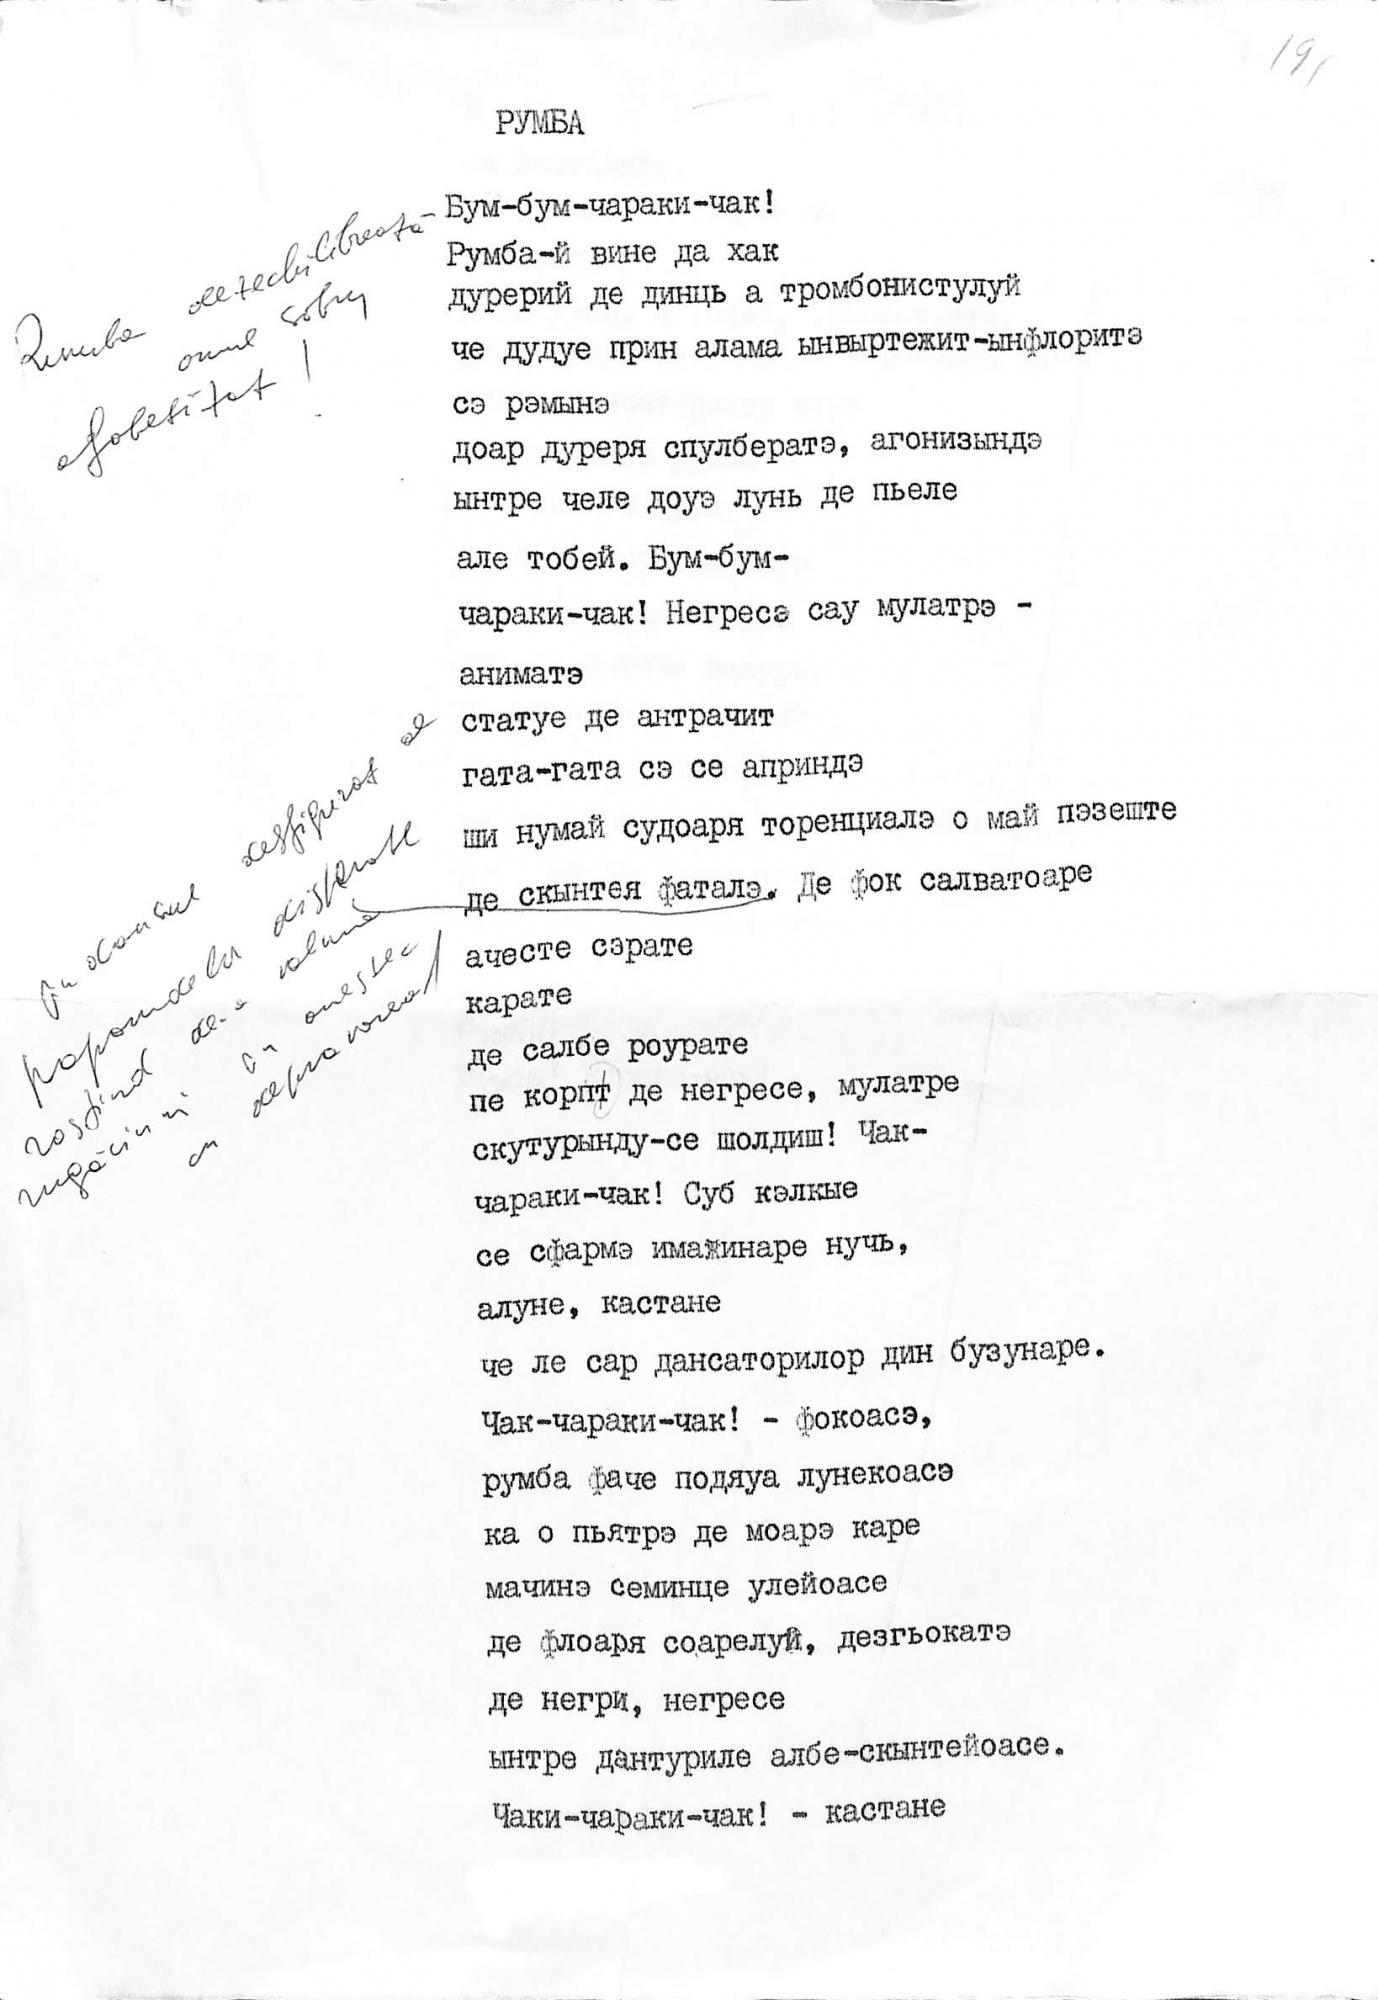 19
РУМБА
Бум-бум-чараки-чак!
Румба-й вине да хак
дурерий де динць а тромбонистулуй
че дудуе прин алама ынвыртежит-ынфлоритэ
сэ рэмынэ
доар дуреря спулбератэ, агонизындэ
ынтре челе доуэ лунь де пьеле
але тобей. Бум-бум-
чараки-чак! Негресэ сау мулатрэ -
аниматэ
статуе де антрачит
гата-гата сэ се априндэ
ши нумай судоаря торенциалэ о май пэзеште
де скынтея фаталэ. Де фок салватоаре
ачесте сэрате
карате
де салбе роурате
пе корпт де негресе, мулатре
скутурынду-се шолдиш! Чак-
чараки-чак! Суб кэлкые
се сфармэ имажинаре нучь,
алуне, кастане
че ле сар дансаторилор дин бузунаре.
Чак-чараки-чак! - фокоасэ,
румба фаче подяуа лунекоасэ
ка о пьятрэ де моарэ каре
мачинэ семинце улейоасе
де флоаря соарелуй, дезгьокатэ
де негри, негресе
ынтре дантуриле албе-скынтейоасе.
Чаки-чараки-чак! - кастане
Rumba dezechilibrează
omul sobru
afabetizat!
În dansul desfigurat al
papomdelor
rostind de-o
rugăciuni în amestec
cu depravarea!